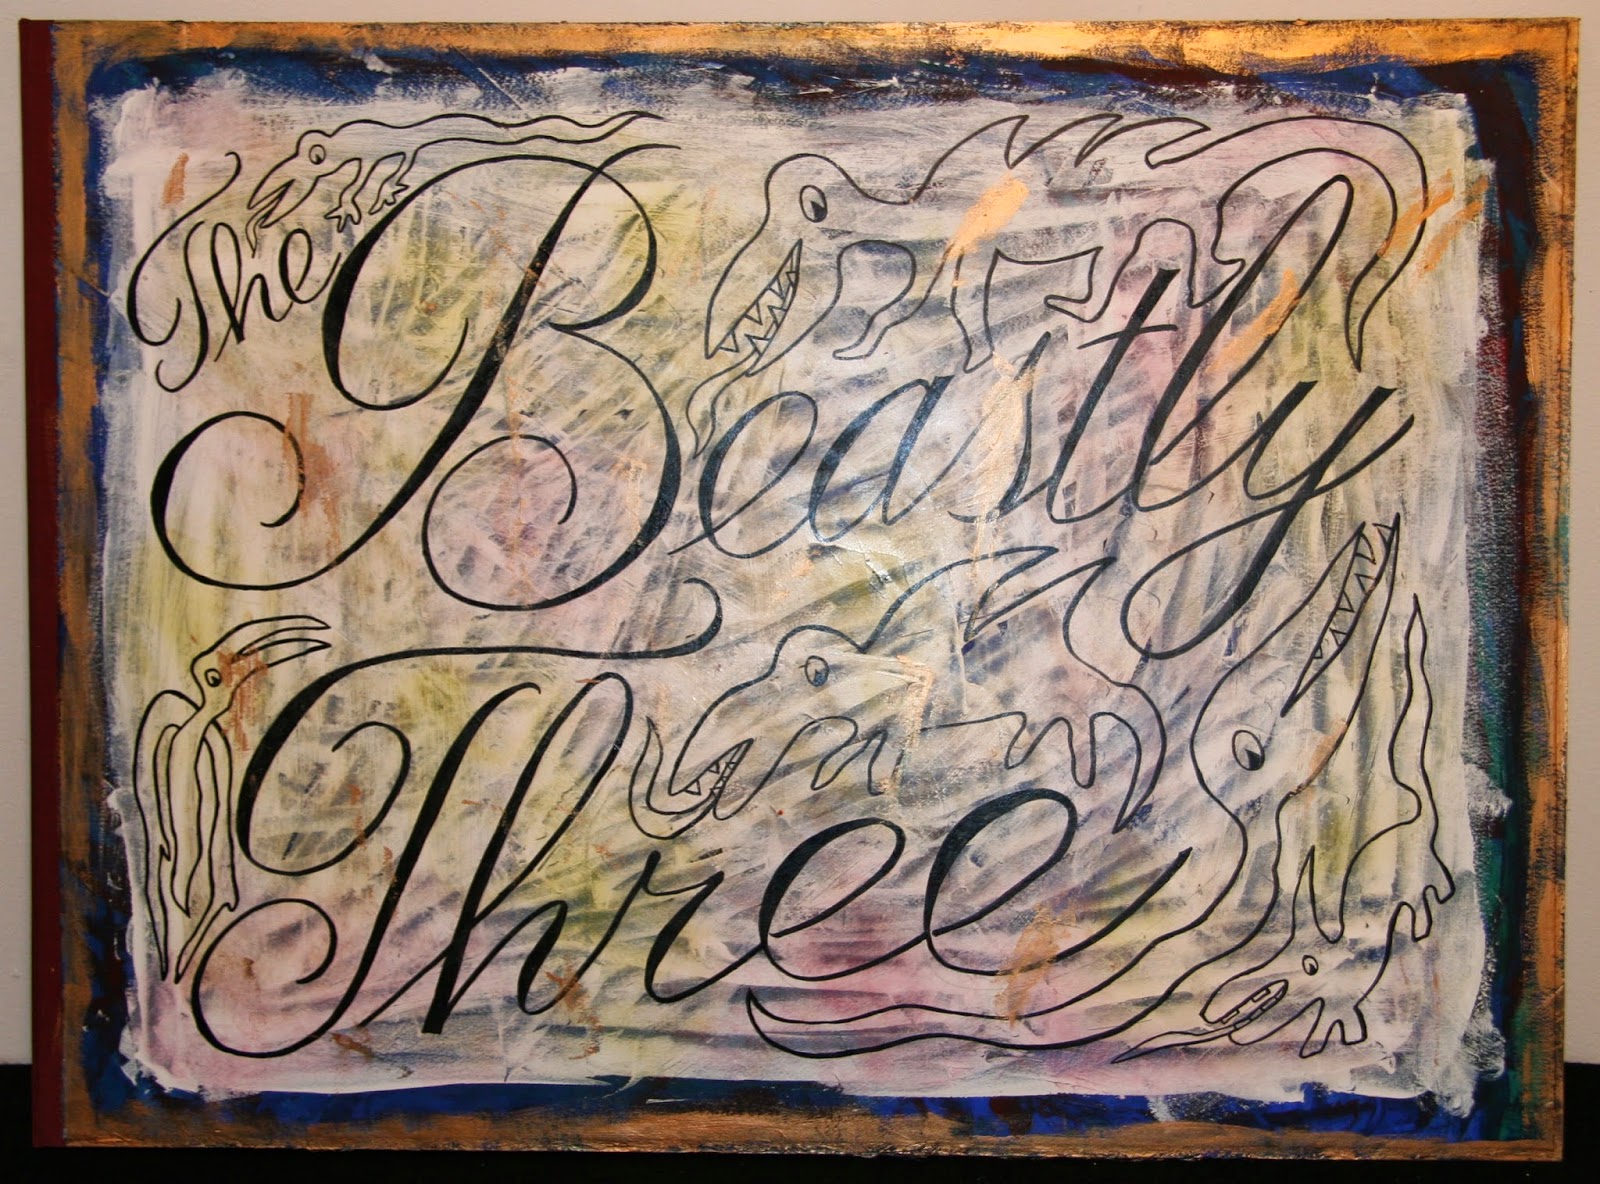 The Beastly
Three